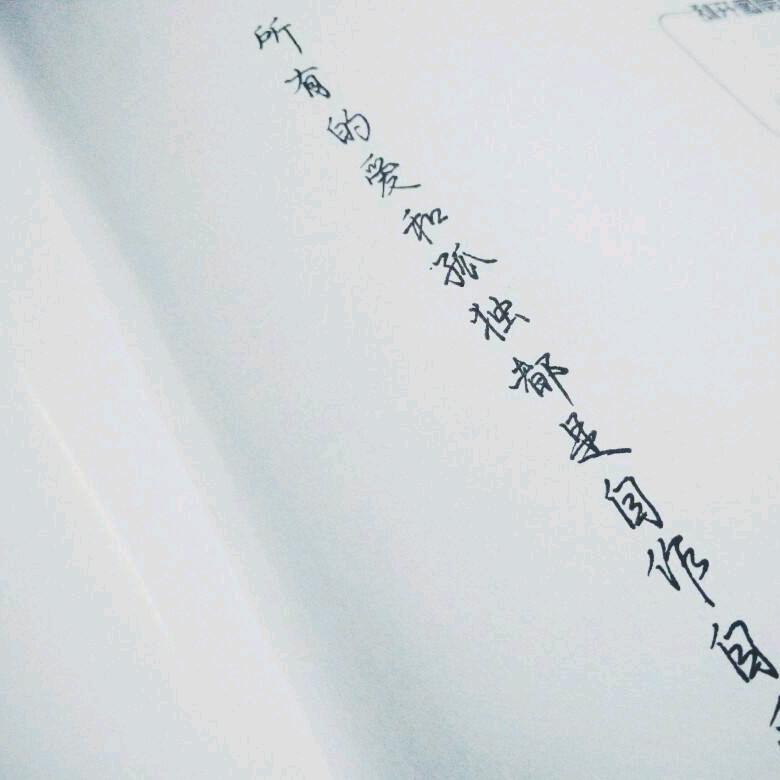 所有的爱和孤独都是自作自